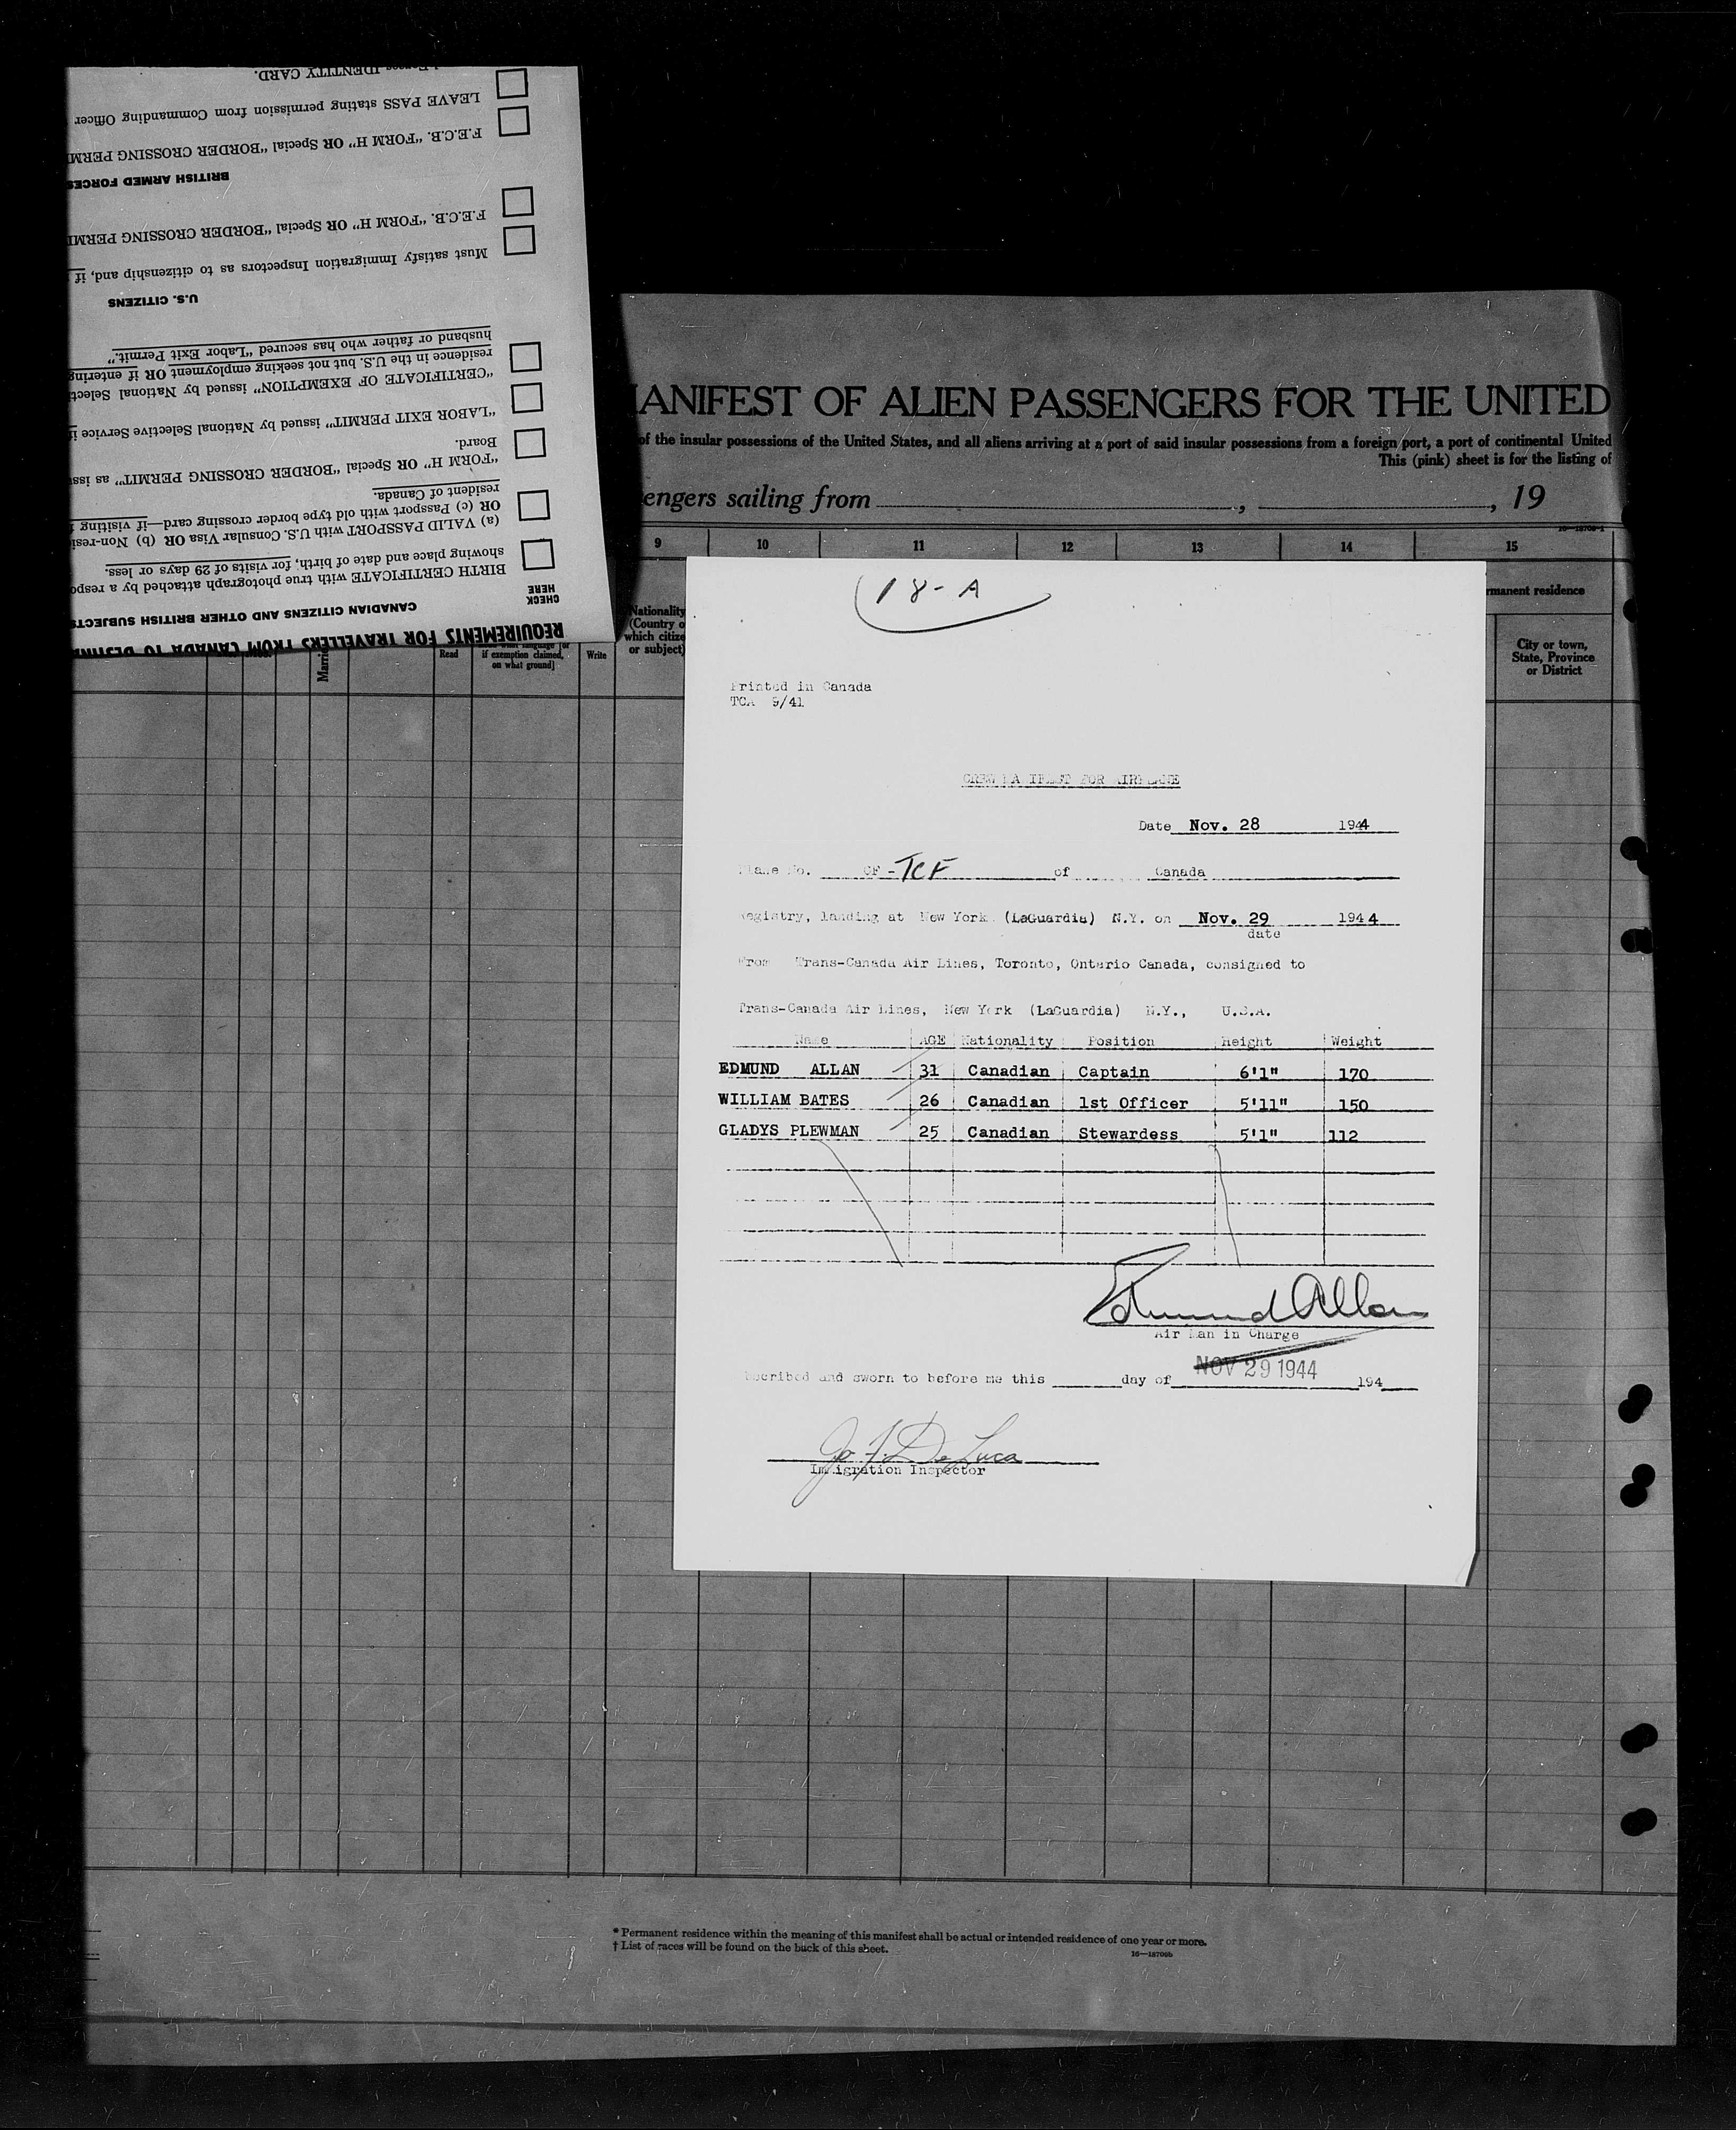 REQUIREMENTS FOR TRAVELLERS FROM CANADA TO
CANADIAN CITIZENS AND OTHER BRITISH SUBJECTS
CHECK
HERE
BIRTH CERTIFICATE with true photograph attached by a
showing place and date of birth, for visits of 29 days or less.
(a) VALID PASSPORT with U.S. Consular Visa OR (b)
OR (c) Passport with old type border crossing card—if visiting
resident of Canada.
"FORM H" OR Special "BORDER CROSSING PERMIT" as
Board.
"LABOR EXIT PERMIT" issued by National Selective Service
"CERTIFICATE OF EXEMPTION" issued by National
residence in the U.S. but not seeking employment OR if entering
husband or father who has secured "Labor Exit Permit."
U.S. CITIZENS
Must satisfy Immigration Inspectors as to citizenship and, if
F.E.C.B. "FORM H" OR Special "BORDER CROSSING
BRITISH ARMED FORCES
F.E.C.B. "FORM H" OR Special "BORDER CROSSING
LEAVE PASS stating permission from Commanding Officer
IDENTITY CARD.
MANIFEST OF ALIEN PASSENGERS FOR THE UNITED
of the insular possessions of the United States, and all aliens arriving at a port of said insular possessions from a foreign port, a port of continental United
This (pink) sheet is for the listing of
engers sailing from , , 19
9 10 11 12 13 14 15
rmanent residence
Nationality
(Country o
which citize
or subject)
City or town,
State, Province
or District
Read
if exemption claimed,
on what ground]
Write
18-A
Printed in Canada
TCA 9/41
CREW MANIFEST FOR AIRPLANE
Date Nov. 28 1944
Plane No. CF-TCF of Canada
Registry, landing at New York (LaGuardia) N.Y. on Nov. 29 1944
date
From Trans-Canada Air Lines, Toronto, Ontario Canada, consigned to
Trans-Canada Air Lines, New York (LaGuardia) N.Y., U.S.A.
Name AGE Nationality Position Height Weight
EDMUND ALLAN 31 Canadian Captain 6'1" 170
WILLIAM BATES 26 Canadian 1st Officer 5'11" 150
GLADYS PLEWMAN 25 Canadian Stewardess 5'1" 112
Edmund Allan
Air Man in Charge
scribed and sworn to before me this day of NOV 29 1944 194
Jo F. De Luca
Immigration Inspector
* Permanent residence within the meaning of this manifest shall be actual or intended residence of one year or more.
† List of races will be found on the back of this sheet.